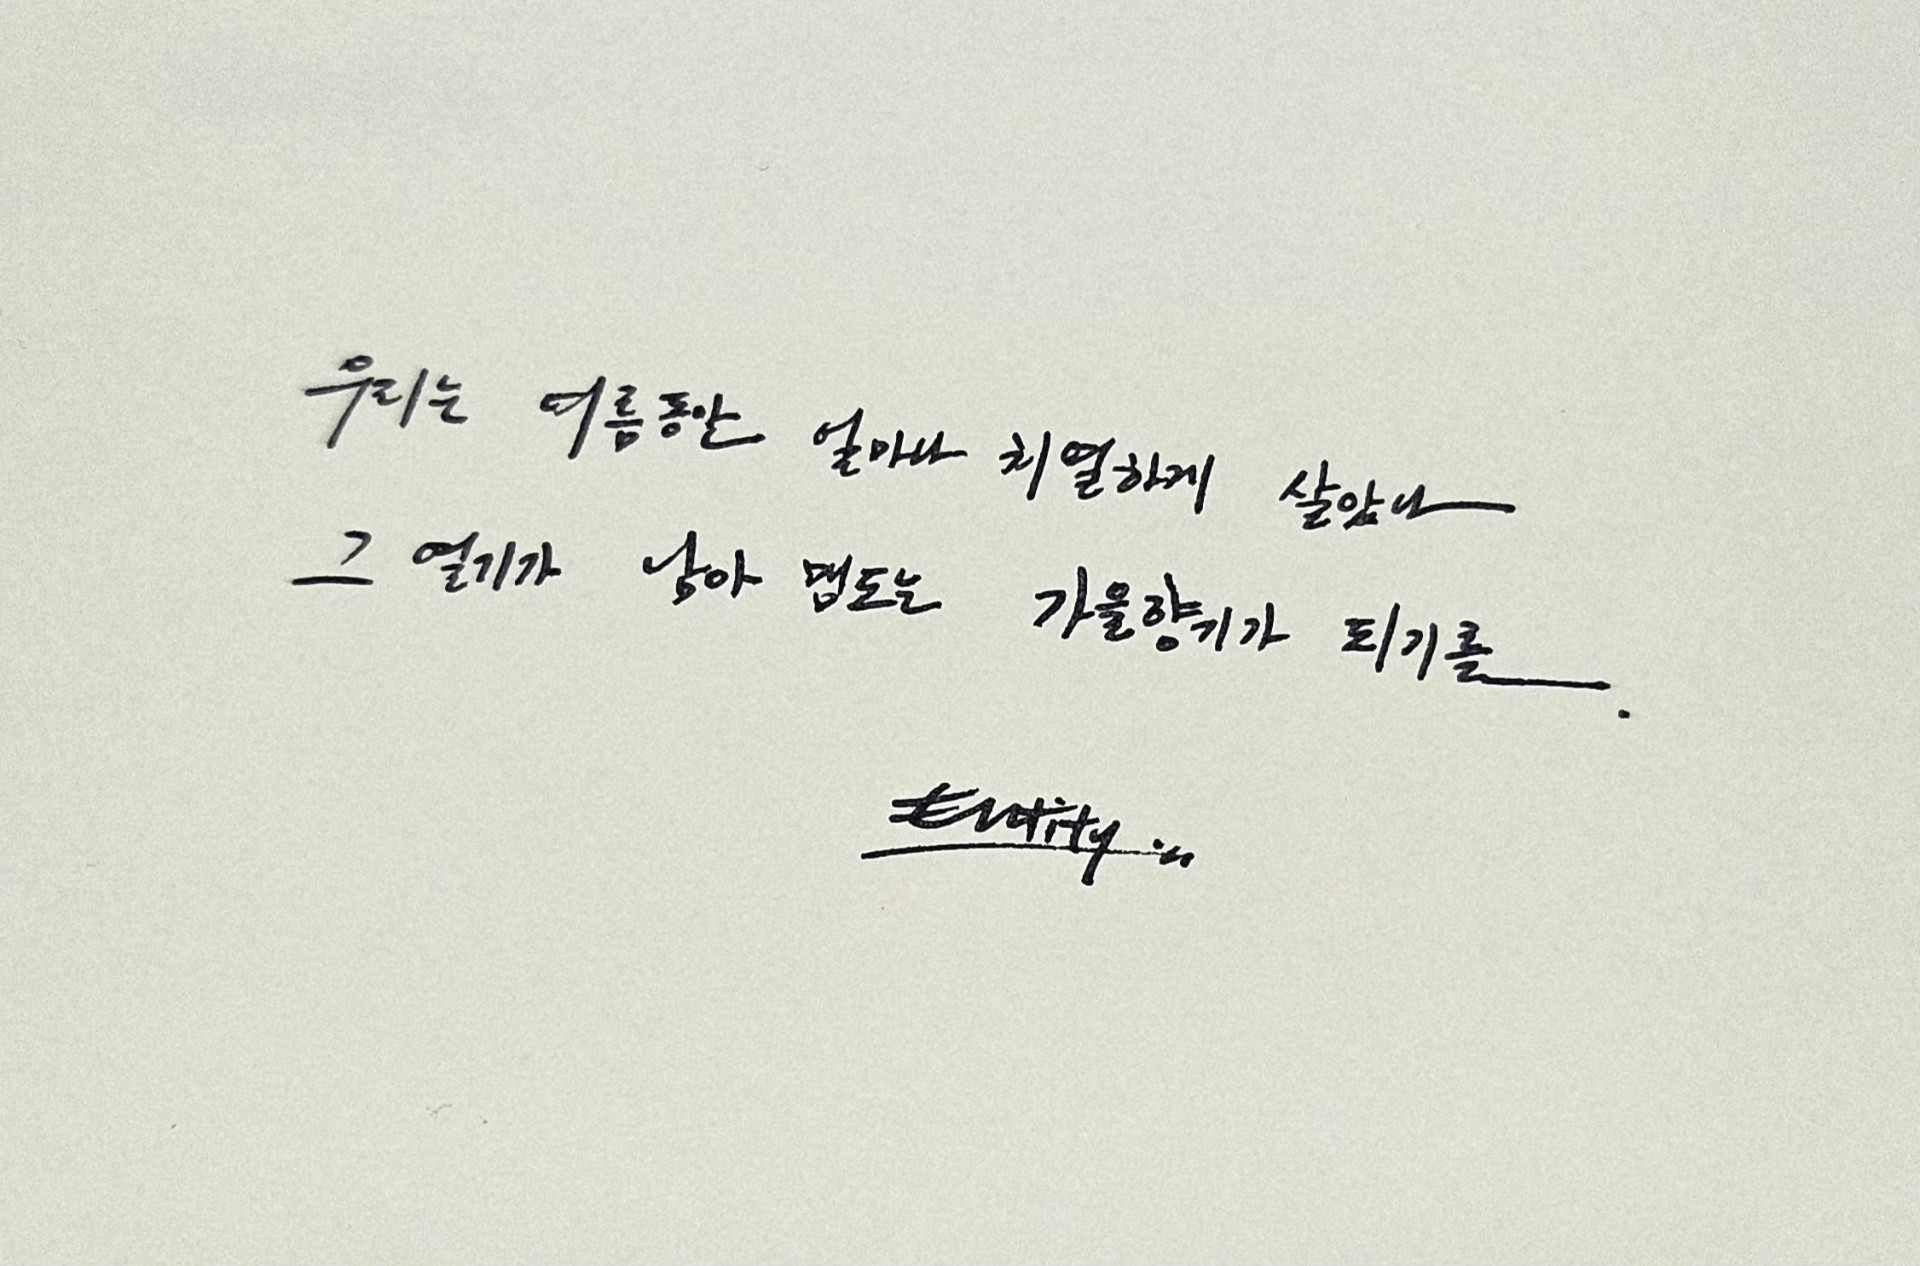 우리는 여름동안 얼마나 치열하게 살았나
그 열기가 남아 맴도는 가을향기가 되기를.
Entity...